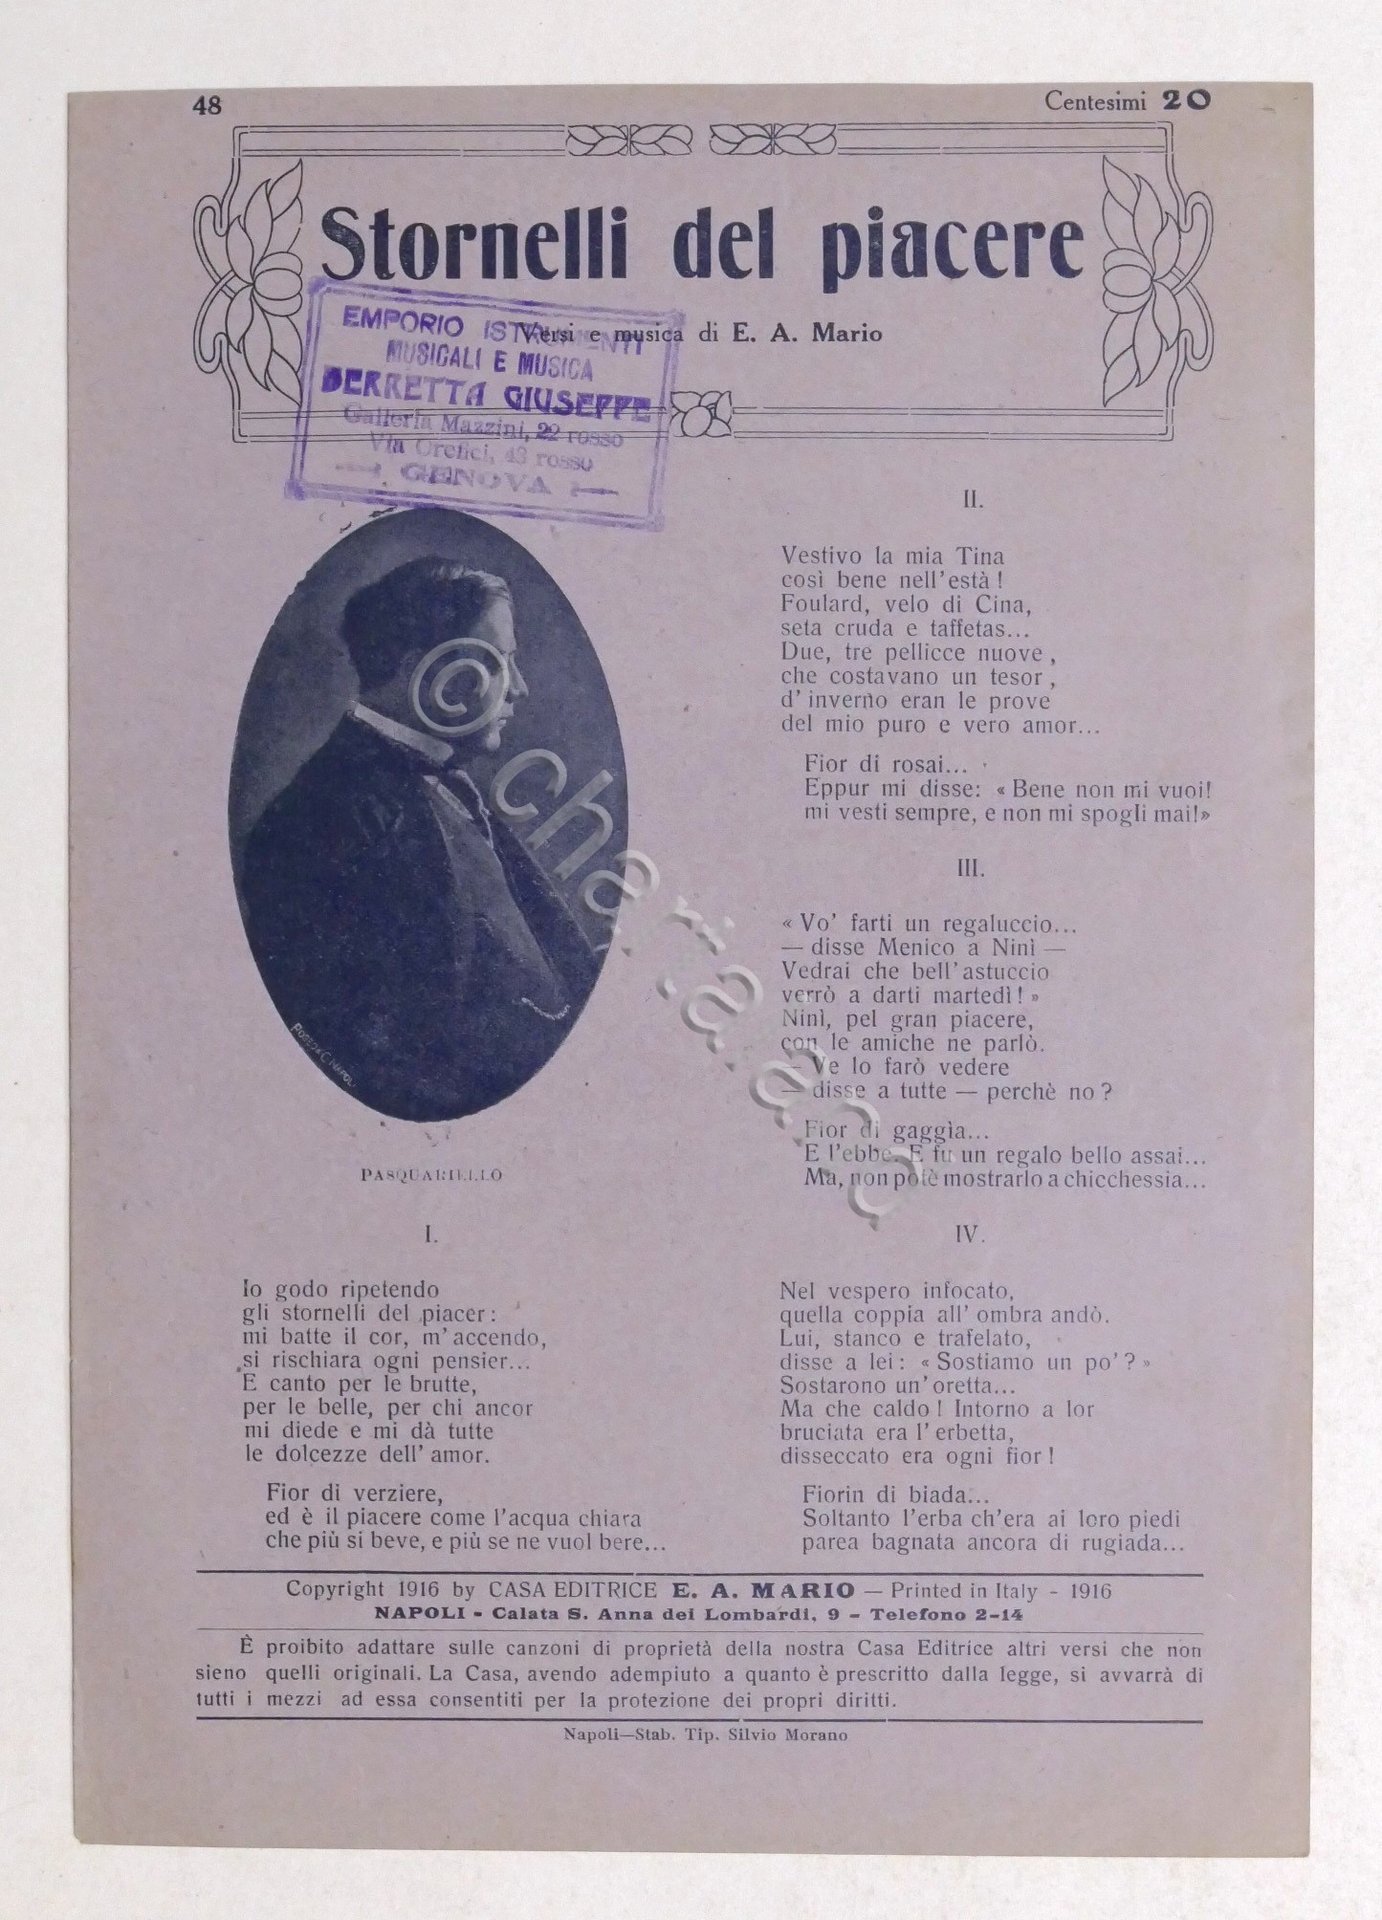 48
Centesimi 20
Stornelli del piacere
Versi e musica di E. A. Mario
EMPORIO ISTRUMENTI
MUSICALI E MUSICA
BERRETTA GIUSEPPE
Galleria Mazzini, 22 rosso
Via Orefici, 43 rosso
GENOVA
PASQUARIELLO
I.
Io godo ripetendo
gli stornelli del piacer:
mi batte il cor, m'accendo,
si rischiara ogni pensier...
E canto per le brutte,
per le belle, per chi ancor
mi diede e mi dà tutte
le dolcezze dell' amor.
Fior di verziere,
ed è il piacere come l'acqua chiara
che più si beve, e più se ne vuol bere...
II.
Vestivo la mia Tina
così bene nell'està!
Foulard, velo di Cina,
seta cruda e taffetas...
Due, tre pellicce nuove,
che costavano un tesor,
d' inverno eran le prove
del mio puro e vero amor...
Fior di rosai...
Eppur mi disse: « Bene non mi vuoi!
mi vesti sempre, e non mi spogli mai!»
III.
« Vo' farti un regaluccio...
— disse Menico a Ninì —
Vedrai che bell'astuccio
verrò a darti martedì! »
Ninì, pel gran piacere,
con le amiche ne parlò.
— Ve lo farò vedere
— disse a tutte — perchè no?
Fior di gaggìa...
E l'ebbe. E fu un regalo bello assai...
Ma, non potè mostrarlo a chicchessia...
IV.
Nel vespero infocato,
quella coppia all' ombra andò.
Lui, stanco e trafelato,
disse a lei: « Sostiamo un po'? »
Sostarono un' oretta...
Ma che caldo! Intorno a lor
bruciata era l' erbetta,
disseccato era ogni fior!
Fiorin di biada...
Soltanto l'erba ch'era ai loro piedi
parea bagnata ancora di rugiada...
Copyright 1916 by CASA EDITRICE E. A. MARIO — Printed in Italy - 1916
NAPOLI - Calata S. Anna dei Lombardi, 9 - Telefono 2-14
È proibito adattare sulle canzoni di proprietà della nostra Casa Editrice altri versi che non
sieno quelli originali. La Casa, avendo adempiuto a quanto è prescritto dalla legge, si avvarrà di
tutti i mezzi ad essa consentiti per la protezione dei propri diritti.
Napoli—Stab. Tip. Silvio Morano